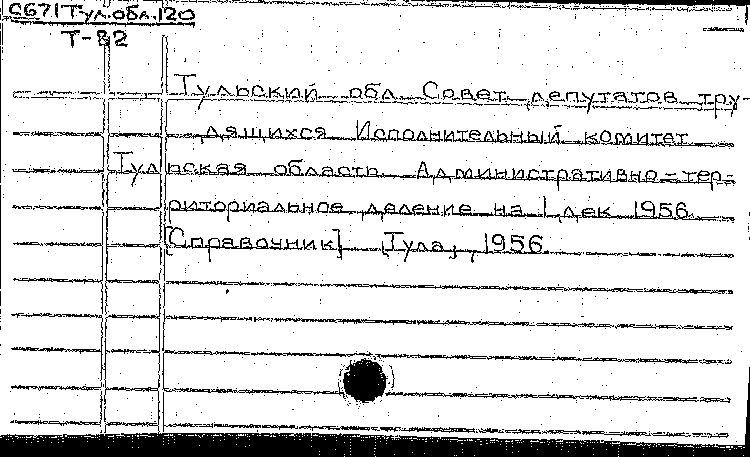 С671Тул.обл.120
Т-82
Тульский обл. Совет депутатов тру-
дящихся Исполнительный комитет
Тульская область. Административно-тер-
риториальное деление на 1 дек 1956
[Справочник] [Тула,, 1956